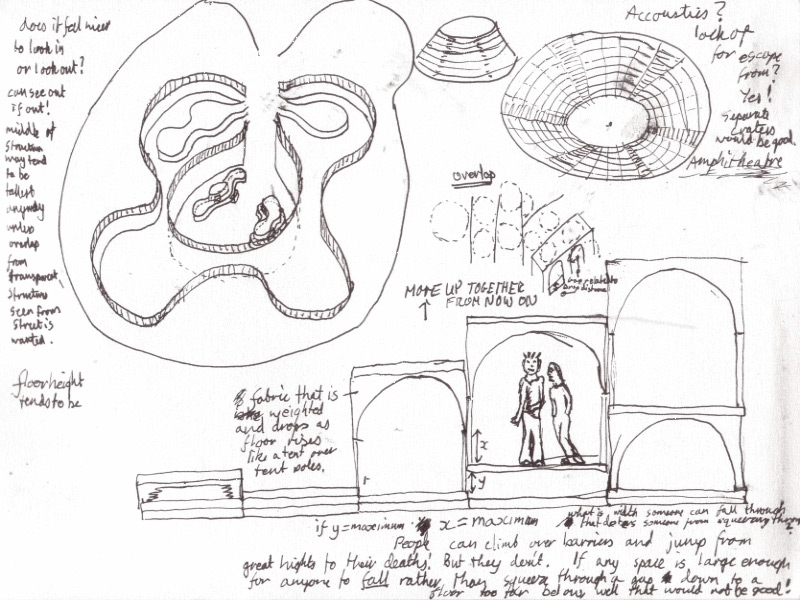 does it feel nicer
to look in
or look out?
can see out
if out!
middle of
structure
may tend
to be
tallest
anyway
unless
overlap
from
transparent,
structure
seen from
street is
wanted.
floor height
tends to be
Accoustics?
lack of
for escape
from?
Yes!
Separate
craters
would be good.
Amphitheatre
overlap
MOVE UP TOGETHER
FROM NOW ON
fabric that is
weighted
and drops as
floor rises
like a tent over
tent poles.
x
y
if y = maximum x = maximum
what's width someone can fall through
that deters someone from squeezing through?
People can climb over barriers and jump from
great hights to their deaths! But they don't. If any space is large enough
for anyone to fall rather than squeeze through a gap down to a
floor too far below well that would not be good!